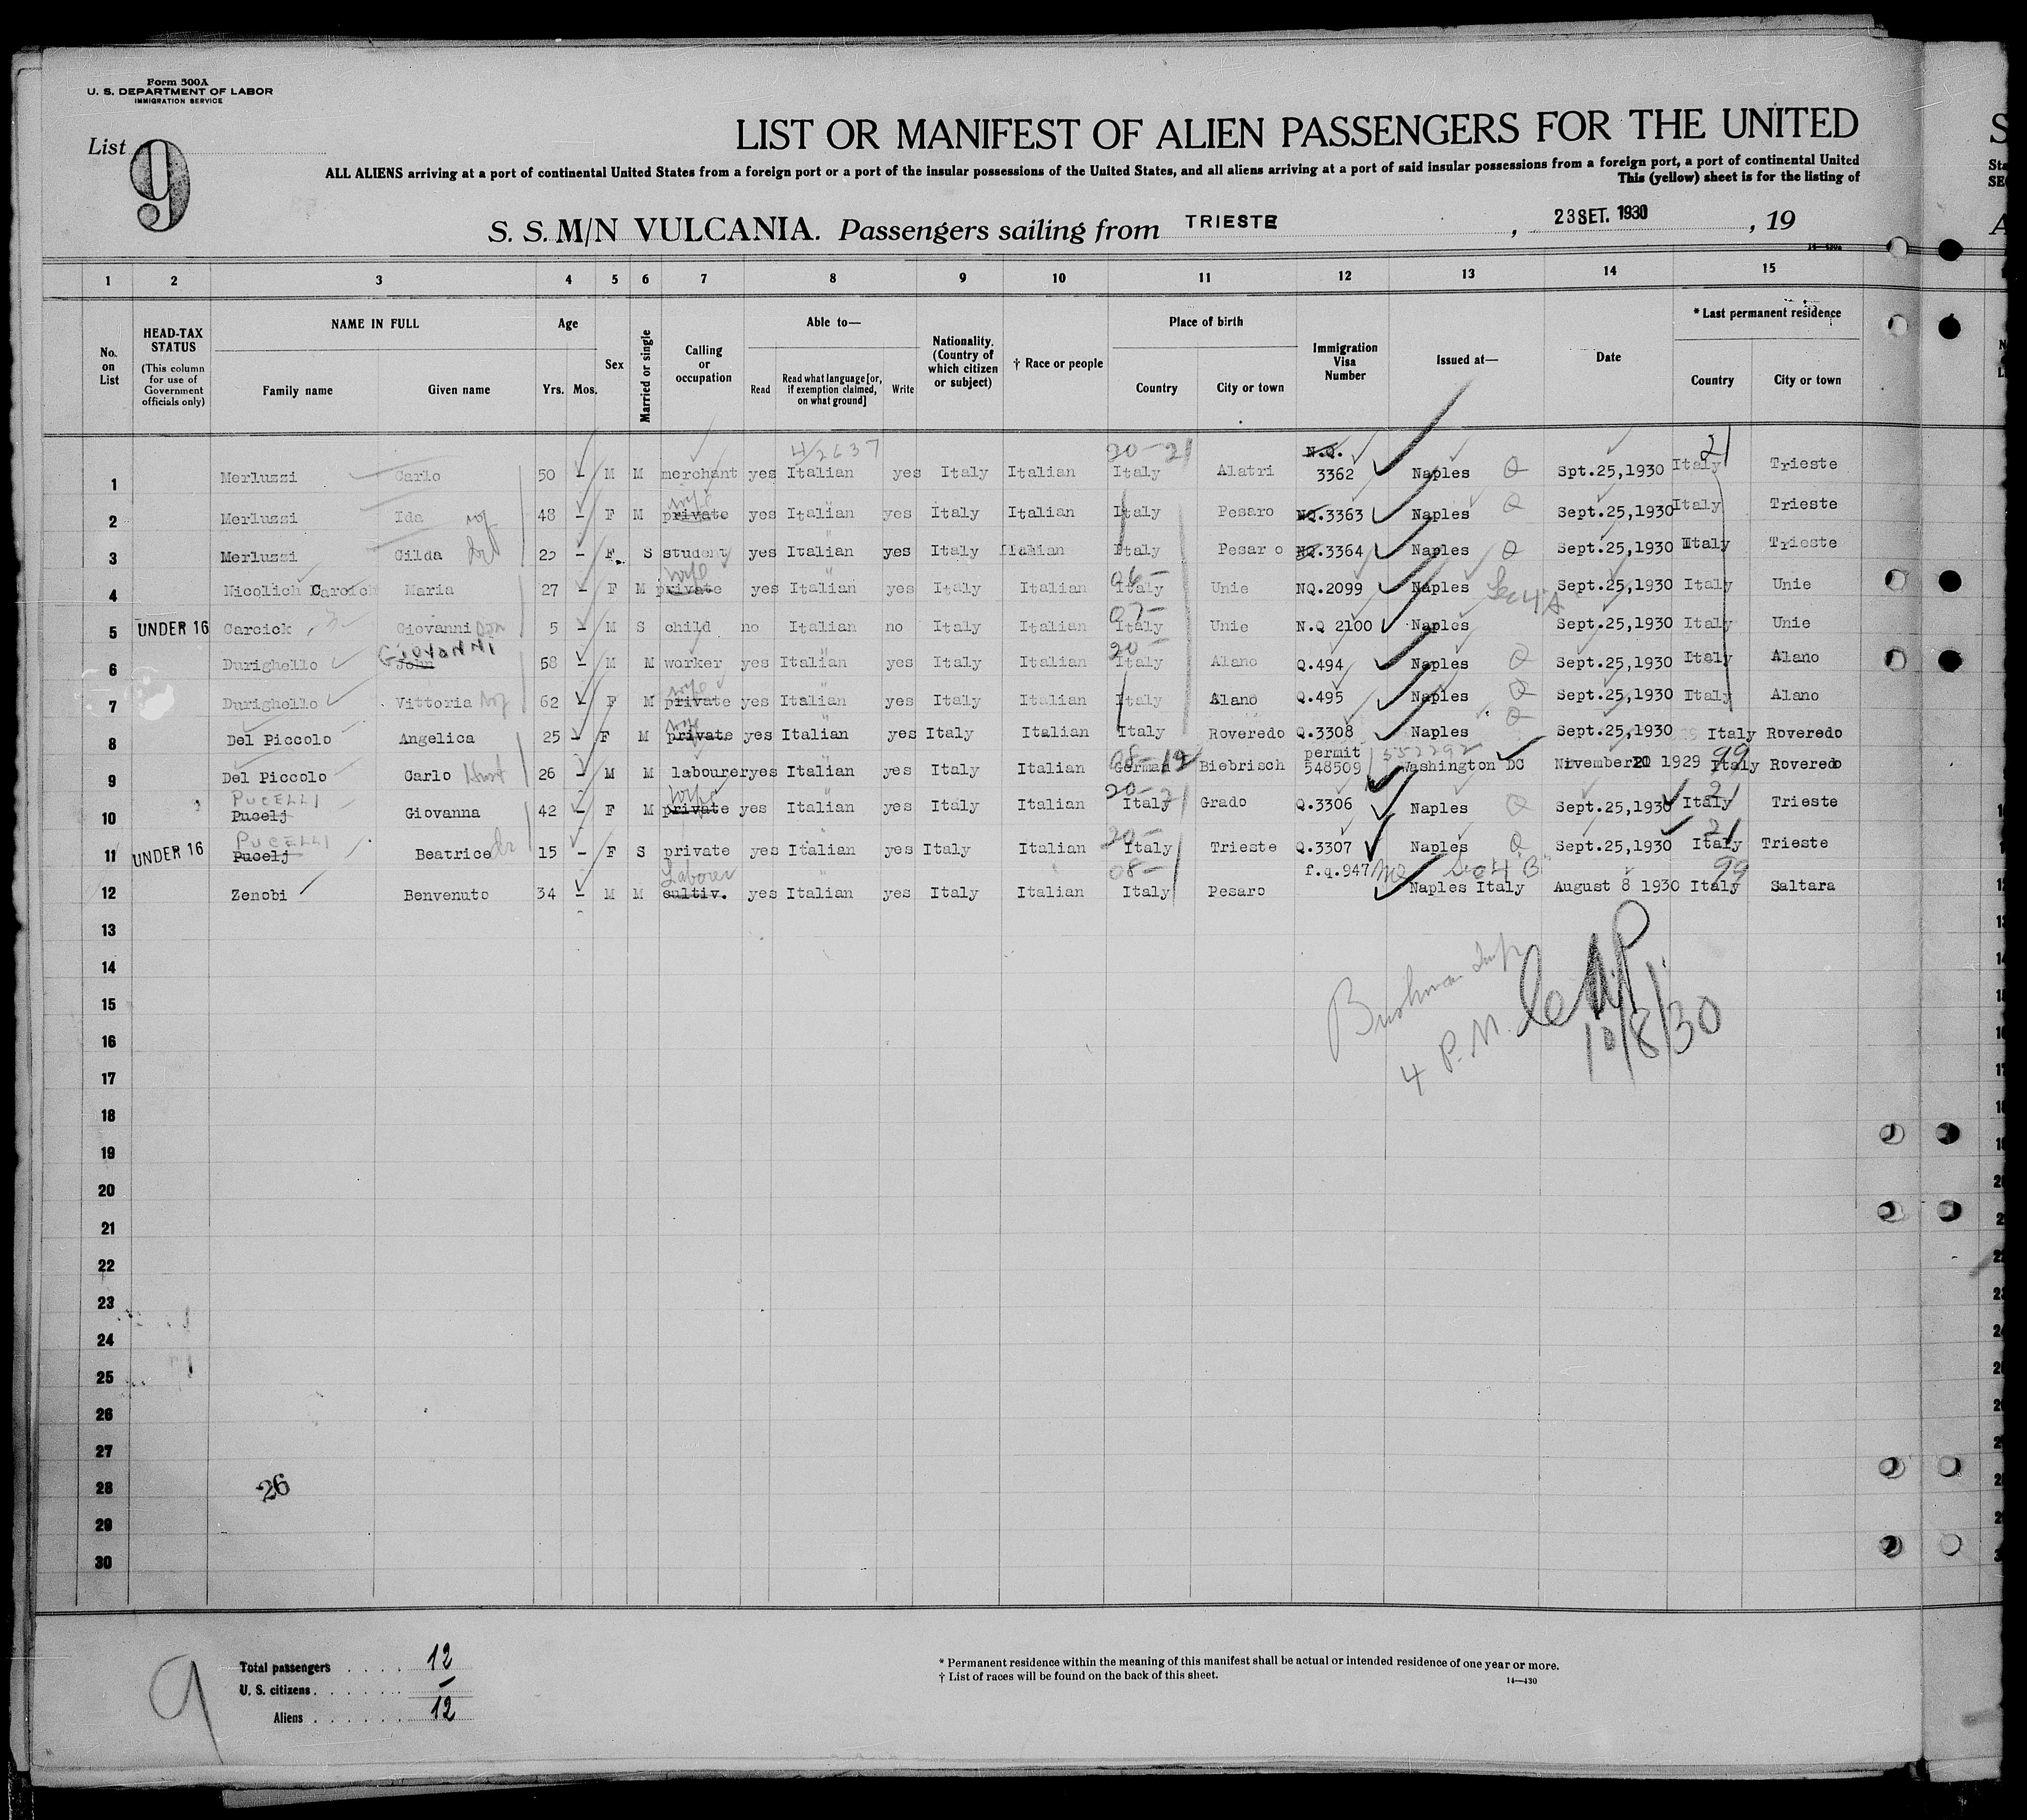 Form 500A
U. S. DEPARTMENT OF LABOR
IMMIGRATION SERVICE
List 9
LIST OR MANIFEST OF ALIEN PASSENGERS FOR THE UNITED
ALL ALIENS arriving at a port of continental United States from a foreign port or a port of the insular possessions of the United States, and all aliens arriving at a port of said insular possessions from a foreign port, a port of continental United
This (yellow) sheet is for the listing of
S. S. M/N VULCANIA. Passengers sailing from TRIESTE , 23 SET. 1930 , 19
1 2 3 4 5 6 7 8 9 10 11 12 13 14 15
No. on List
HEAD-TAX STATUS
(This column for use of Government officials only)
NAME IN FULL
Family name Given name
Age
Yrs. Mos.
Sex
Married or single
Calling or occupation
Able to—
Read Read what language [or, if exemption claimed, on what ground] Write
Nationality. (Country of which citizen or subject)
† Race or people
Place of birth
Country City or town
Immigration Visa Number
Issued at—
Date
* Last permanent residence
Country City or town
4/2637 20-21 N.Q. 21
1 Merluzzi Carlo 50 - M M merchant yes Italian yes Italy Italian Italy Alatri 3362 Naples Q Spt.25,1930 Italy Trieste
wife
2 Merluzzi Ida wf 48 - F M private yes Italian yes Italy Italian Italy Pesaro NQ.3363 Naples Q Sept.25,1930 Italy Trieste
3 Merluzzi Gilda dr - F. S student yes Italian yes Italy Italian Italy Pesar o NQ.3364 Naples Q Sept.25,1930 Italy Trieste
wife 06-
4 Nicolich Carcich Maria 27 - F M private yes Italian yes Italy Italian Italy Unie NQ.2099 Naples Sec 4 A Sept.25,1930 Italy Unie
07-
5 UNDER 16 Carcick Giovanni son 5 - M S child no Italian no Italy Italian Italy Unie N.Q 2100 Naples Sept.25,1930 Italy Unie
GIOVANNI 20-
6 Durighello John 58 - M M worker yes Italian yes Italy Italian Italy Alano Q.494 Naples Q Sept.25,1930 Italy Alano
wife
7 Durighello Vittoria wf 62 - F M private yes Italian yes Italy Italian Italy Alano Q.495 Naples Q Sept.25,1930 Italy Alano
wife Q
8 Del Piccolo Angelica 25 - F M private yes Italian yes Italy Italian Italy Roveredo Q.3308 Naples Sept.25,1930 Italy Roveredo
08-12 permit 552292 99
9 Del Piccolo Carlo Husb 26 - M M labourer yes Italian yes Italy Italian German Biebrisch 548509 Washington DC November 20 1929 Italy Roveredo
PUCELLI wife 20-21 21
10 Pucelj Giovanna 42 - F M private yes Italian yes Italy Italian Italy Grado Q.3306 Naples Q Sept.25,1930 Italy Trieste
PUCELLI 20- 21
11 UNDER 16 Pucelj Beatrice dr 15 - F S private yes Italian yes Italy Italian Italy Trieste Q.3307 Naples Q Sept.25,1930 Italy Trieste
Laborer 08- f.q.947 NQ Sec 4 "B" 99
12 Zenobi Benvenuto 34 - M M cultiv. yes Italian yes Italy Italian Italy Pesaro Naples Italy August 8 1930 Italy Saltara
13
14
15
Bushman Insp
16
4 P.M. 10/8/30
17
18
19
20
21
22
23
24
25
26
27
28 26
29
30
9
Total passengers . . . . 12
U. S. citizens . . . . . . . -
Aliens . . . . . . 12
* Permanent residence within the meaning of this manifest shall be actual or intended residence of one year or more.
† List of races will be found on the back of this sheet.
14—430